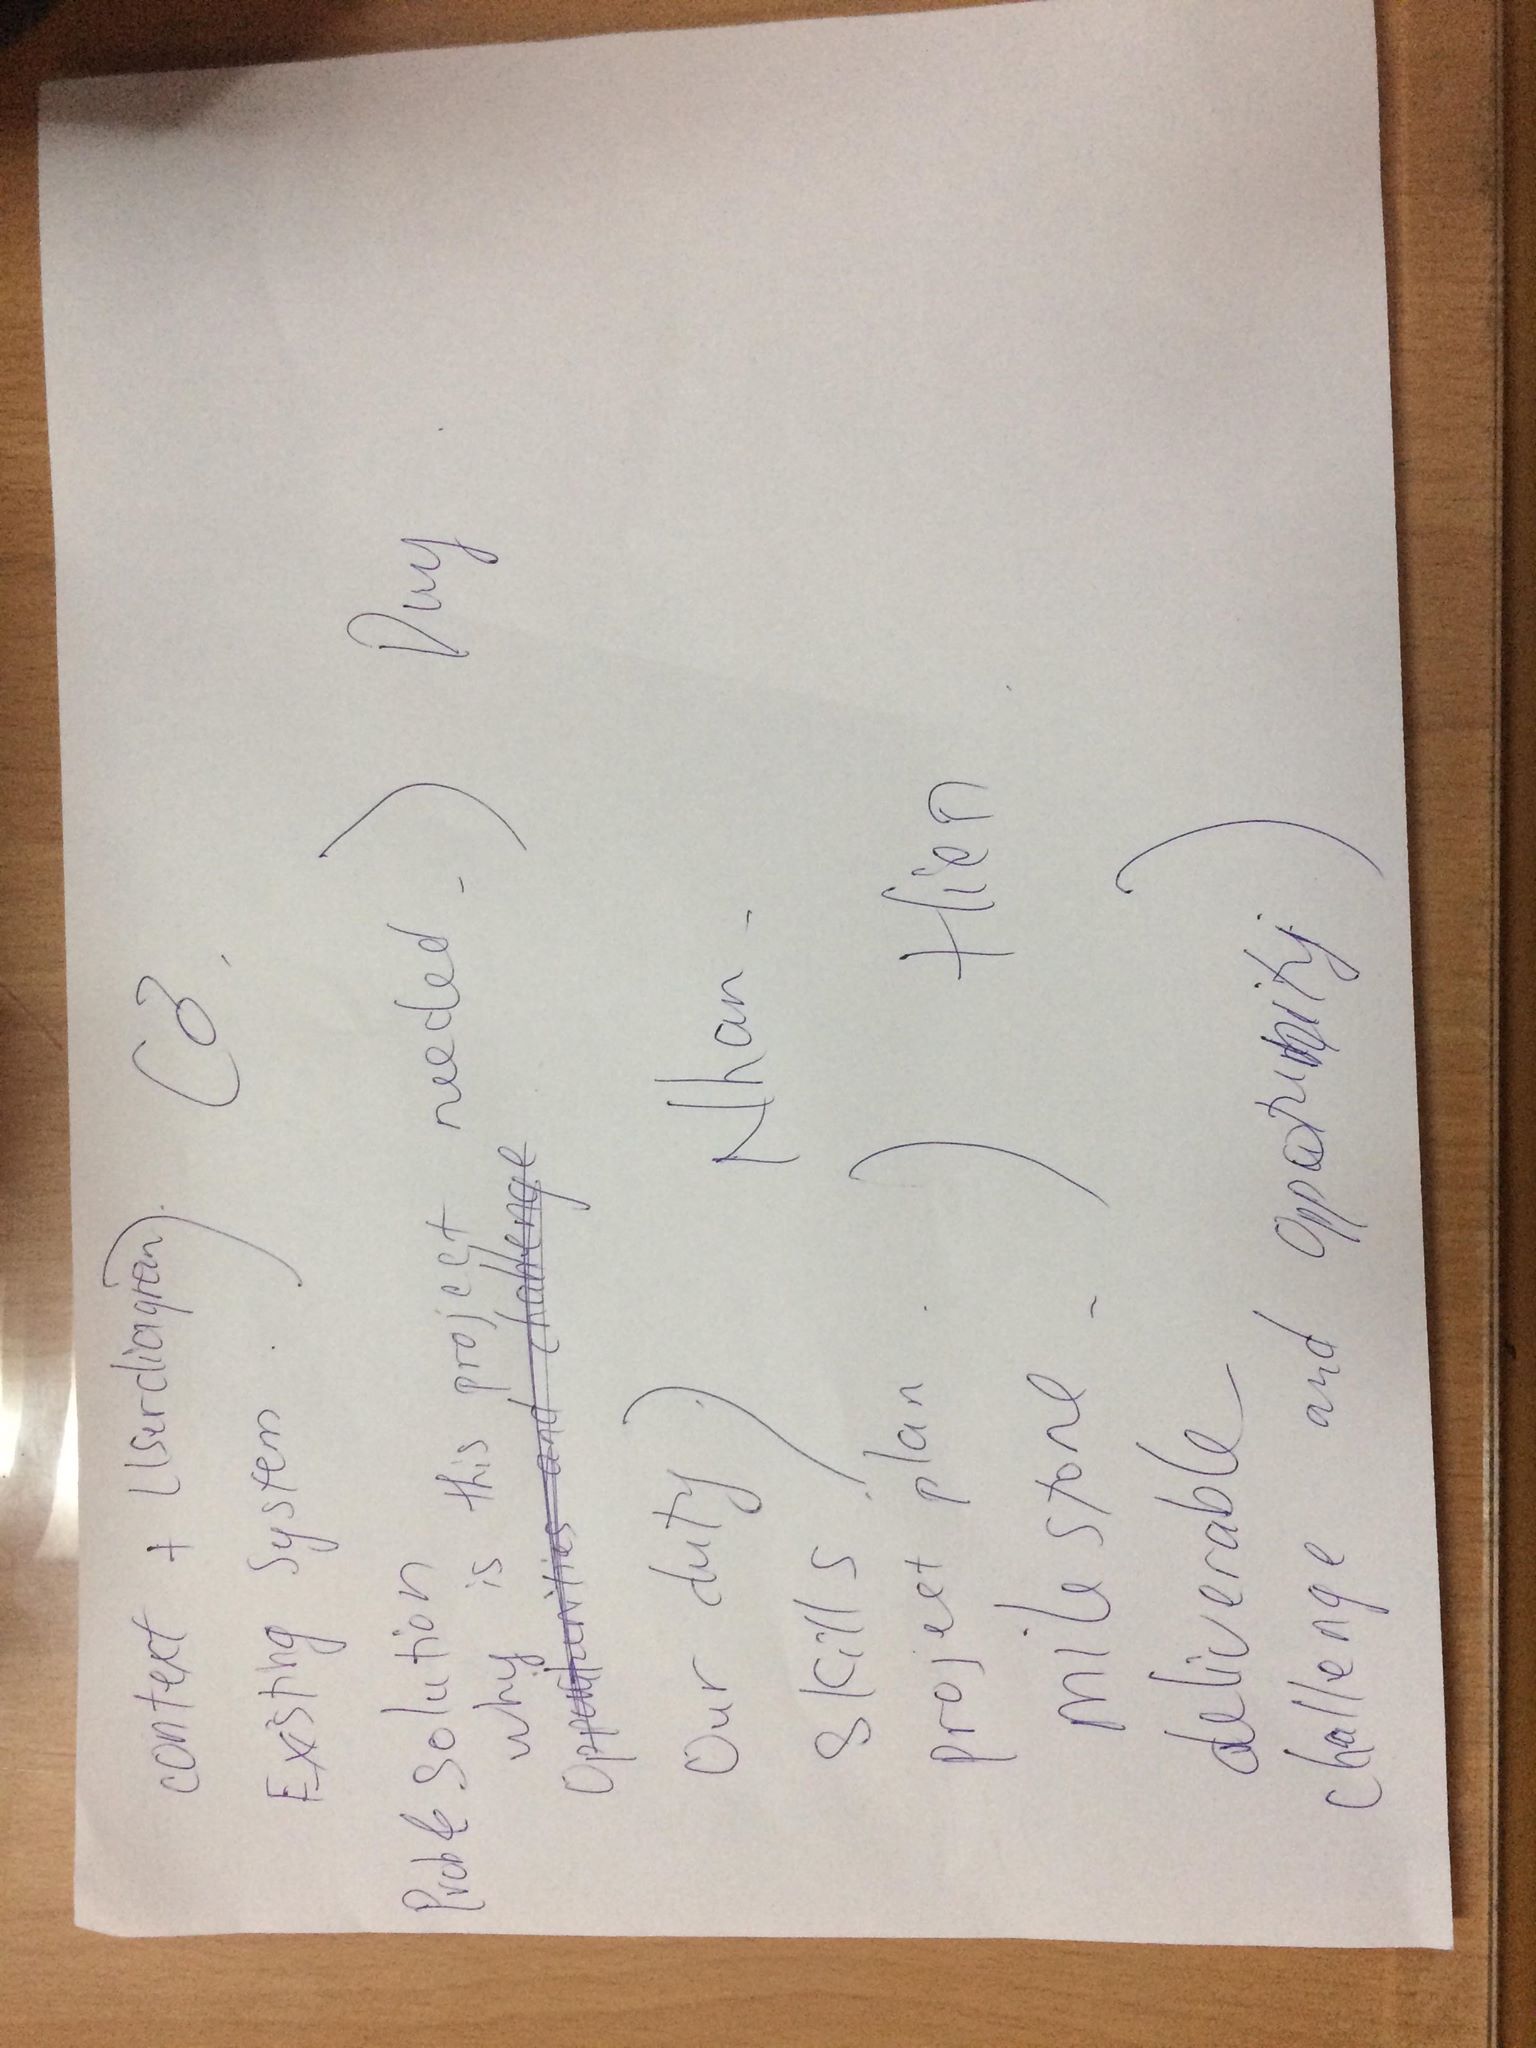 context + Userdiagram
Existing System.
Prob & Solution
why is this project needed.
Duy
Opportunities and challenge
Our duty
Nhan
Skills
project plan.
Hien
mile stone
deliverable
challenge and opportunity